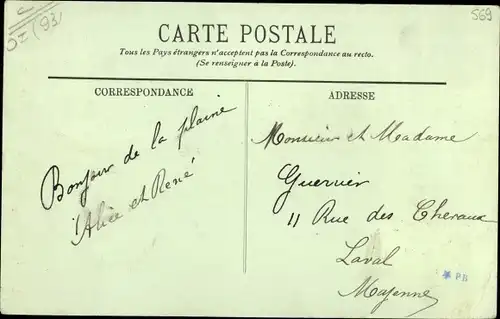 569
(93)
CARTE POSTALE
Tous les Pays étrangers n'acceptent pas la Correspondance au recto.
(Se renseigner à la Poste).
CORRESPONDANCE
Bonjour de la plaine
Alice et René
ADRESSE
Monsieur et Madame
Guerrier
11 Rue des Cheraux
Laval
Mayenne
* PB